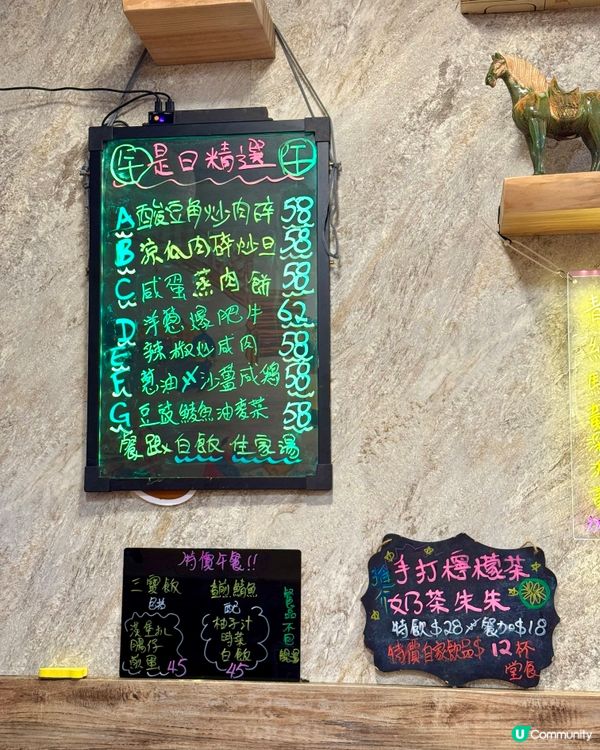 午 是日精選 午
A 酸豆角炒肉碎 58
B 涼瓜肉碎炒旦 58
C 咸蛋蒸肉餅 58
D 洋蔥爆肥牛 62
E 辣椒炒咸肉 58
F 蔥油/沙薑咸鷄 58
G 豆豉鯪魚油麥菜 58
餐跟 白飯 住家湯
特價午餐!!
三寶飯
包括
漢堡扒
腸仔
45
鯖魚
配
柚子汁
時菜
白飯
45
餐品不包
手打檸檬茶
奶茶朱朱
特飲$28 餐加$18
特價自家飲品$12杯
堂食
U Community